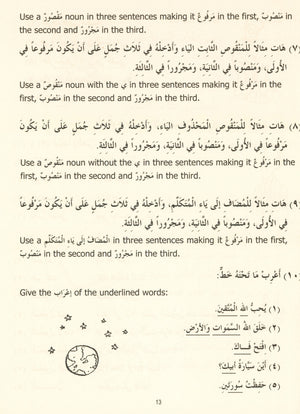 Use a مَقْصُوْرٌ noun in three sentences making it مَرْفُوعٌ in the first, مَنْصُوْبٌ in
the second and مَجْرُوْرٌ in the third.
(٧) هَاتِ مِثَالاً لِلْمَنْقُوصِ الثَّابِتِ اليَاءِ وَأَدْخِلْهُ فِي ثَلَاثِ جُمَلٍ عَلَى أَنْ يَكُونَ مَرْفُوعاً فِي
الأُولَى، وَمَنْصُوباً فِي الثَّانِيَةِ، وَمَجْرُوراً فِي الثَّالِثَةِ.
Use a مَنْقُوصٌ noun with the ي in three sentences making it مَرْفُوعٌ in the
first, مَنْصُوْبٌ in the second and مَجْرُوْرٌ in the third.
(٨) هَاتِ مِثَالاً لِلْمَنْقُوصِ الْمَحْذُوفِ اليَاءِ، وَأَدْخِلْهُ فِي ثَلَاثِ جُمَلٍ عَلَى أَنْ يَكُونَ
مَرْفُوعاً فِي الأُولَى، وَمَنْصُوباً فِي الثَّانِيَةِ، وَمَجْرُوراً فِي الثَّالِثَةِ.
Use a مَنْقُوصٌ noun without the ي in three sentences making it مَرْفُوعٌ in the
first, مَنْصُوْبٌ in the second and مَجْرُوْرٌ in the third.
(٩) هَاتِ مِثَالاً لِلْمُضَافِ إِلَى يَاءِ الْمُتَكَلِّمِ، وَأَدْخِلْهُ فِي ثَلَاثِ جُمَلٍ عَلَى أَنْ يَكُونَ مَرْفُوعًا
فِي الأُولَى، وَمَنْصُوباً فِي الثَّانِيَةِ، وَمَجْرُوراً فِي الثَّالِثَةِ.
Use a الْمُضَافُ إِلَى يَاءِ الْمُتَكَلِّمِ in three sentences making it مَرْفُوعٌ in the first,
مَنْصُوْبٌ in the second and مَجْرُوْرٌ in the third.
(١٠) أَعْرِبْ مَا تَحْتَهُ خَطٌّ:
Give the إِعْرَاب of the underlined words:
(١) يُحِبُّ اللهُ الْمُتَّقِينَ.
(٢) خَلَقَ اللهُ السَّمَوَاتِ وَالأَرْضَ.
(٣) اِفْتَحْ فَاكَ.
(٤) أَيْنَ سَيَّارَةُ أَبِيكَ؟
(٥) حَفِظْتُ سُورَتَيْنِ.
13